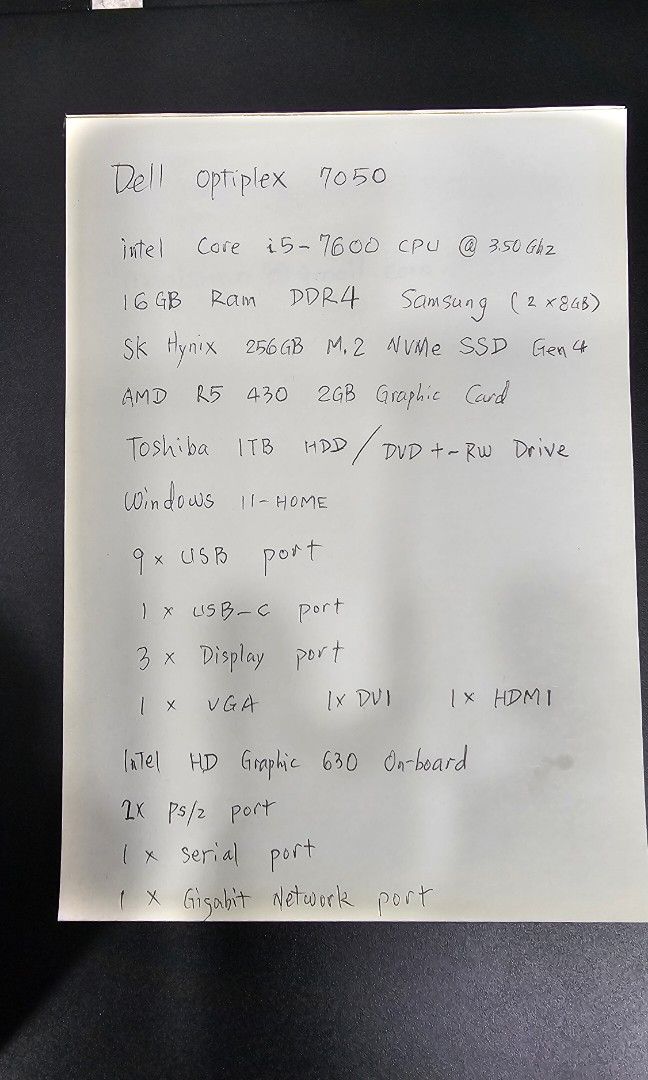 Dell Optiplex 7050
intel Core i5-7600 CPU @ 3.50 Ghz
16 GB Ram DDR4 Samsung (2 x 8GB)
Sk Hynix 256GB M.2 NVMe SSD Gen 4
AMD R5 430 2GB Graphic Card
Toshiba 1TB HDD / DVD +- RW Drive
Windows 11-HOME
9 x USB port
1 x USB-C port
3 x Display port
1 x VGA 1x DVI 1x HDMI
Intel HD Graphic 630 On-board
2x Ps/2 port
1 x Serial port
1 x Gigabit Network port